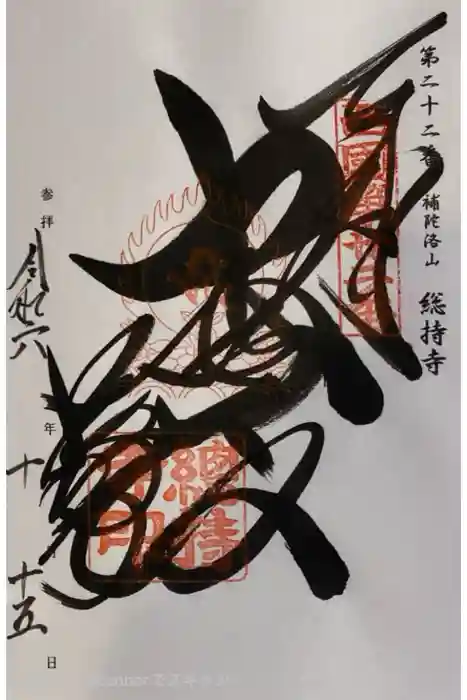 第二十二番 補陀洛山 総持寺
西國第廿二番
大悲殿
總持寺印
参拝
令和六年十 十五日